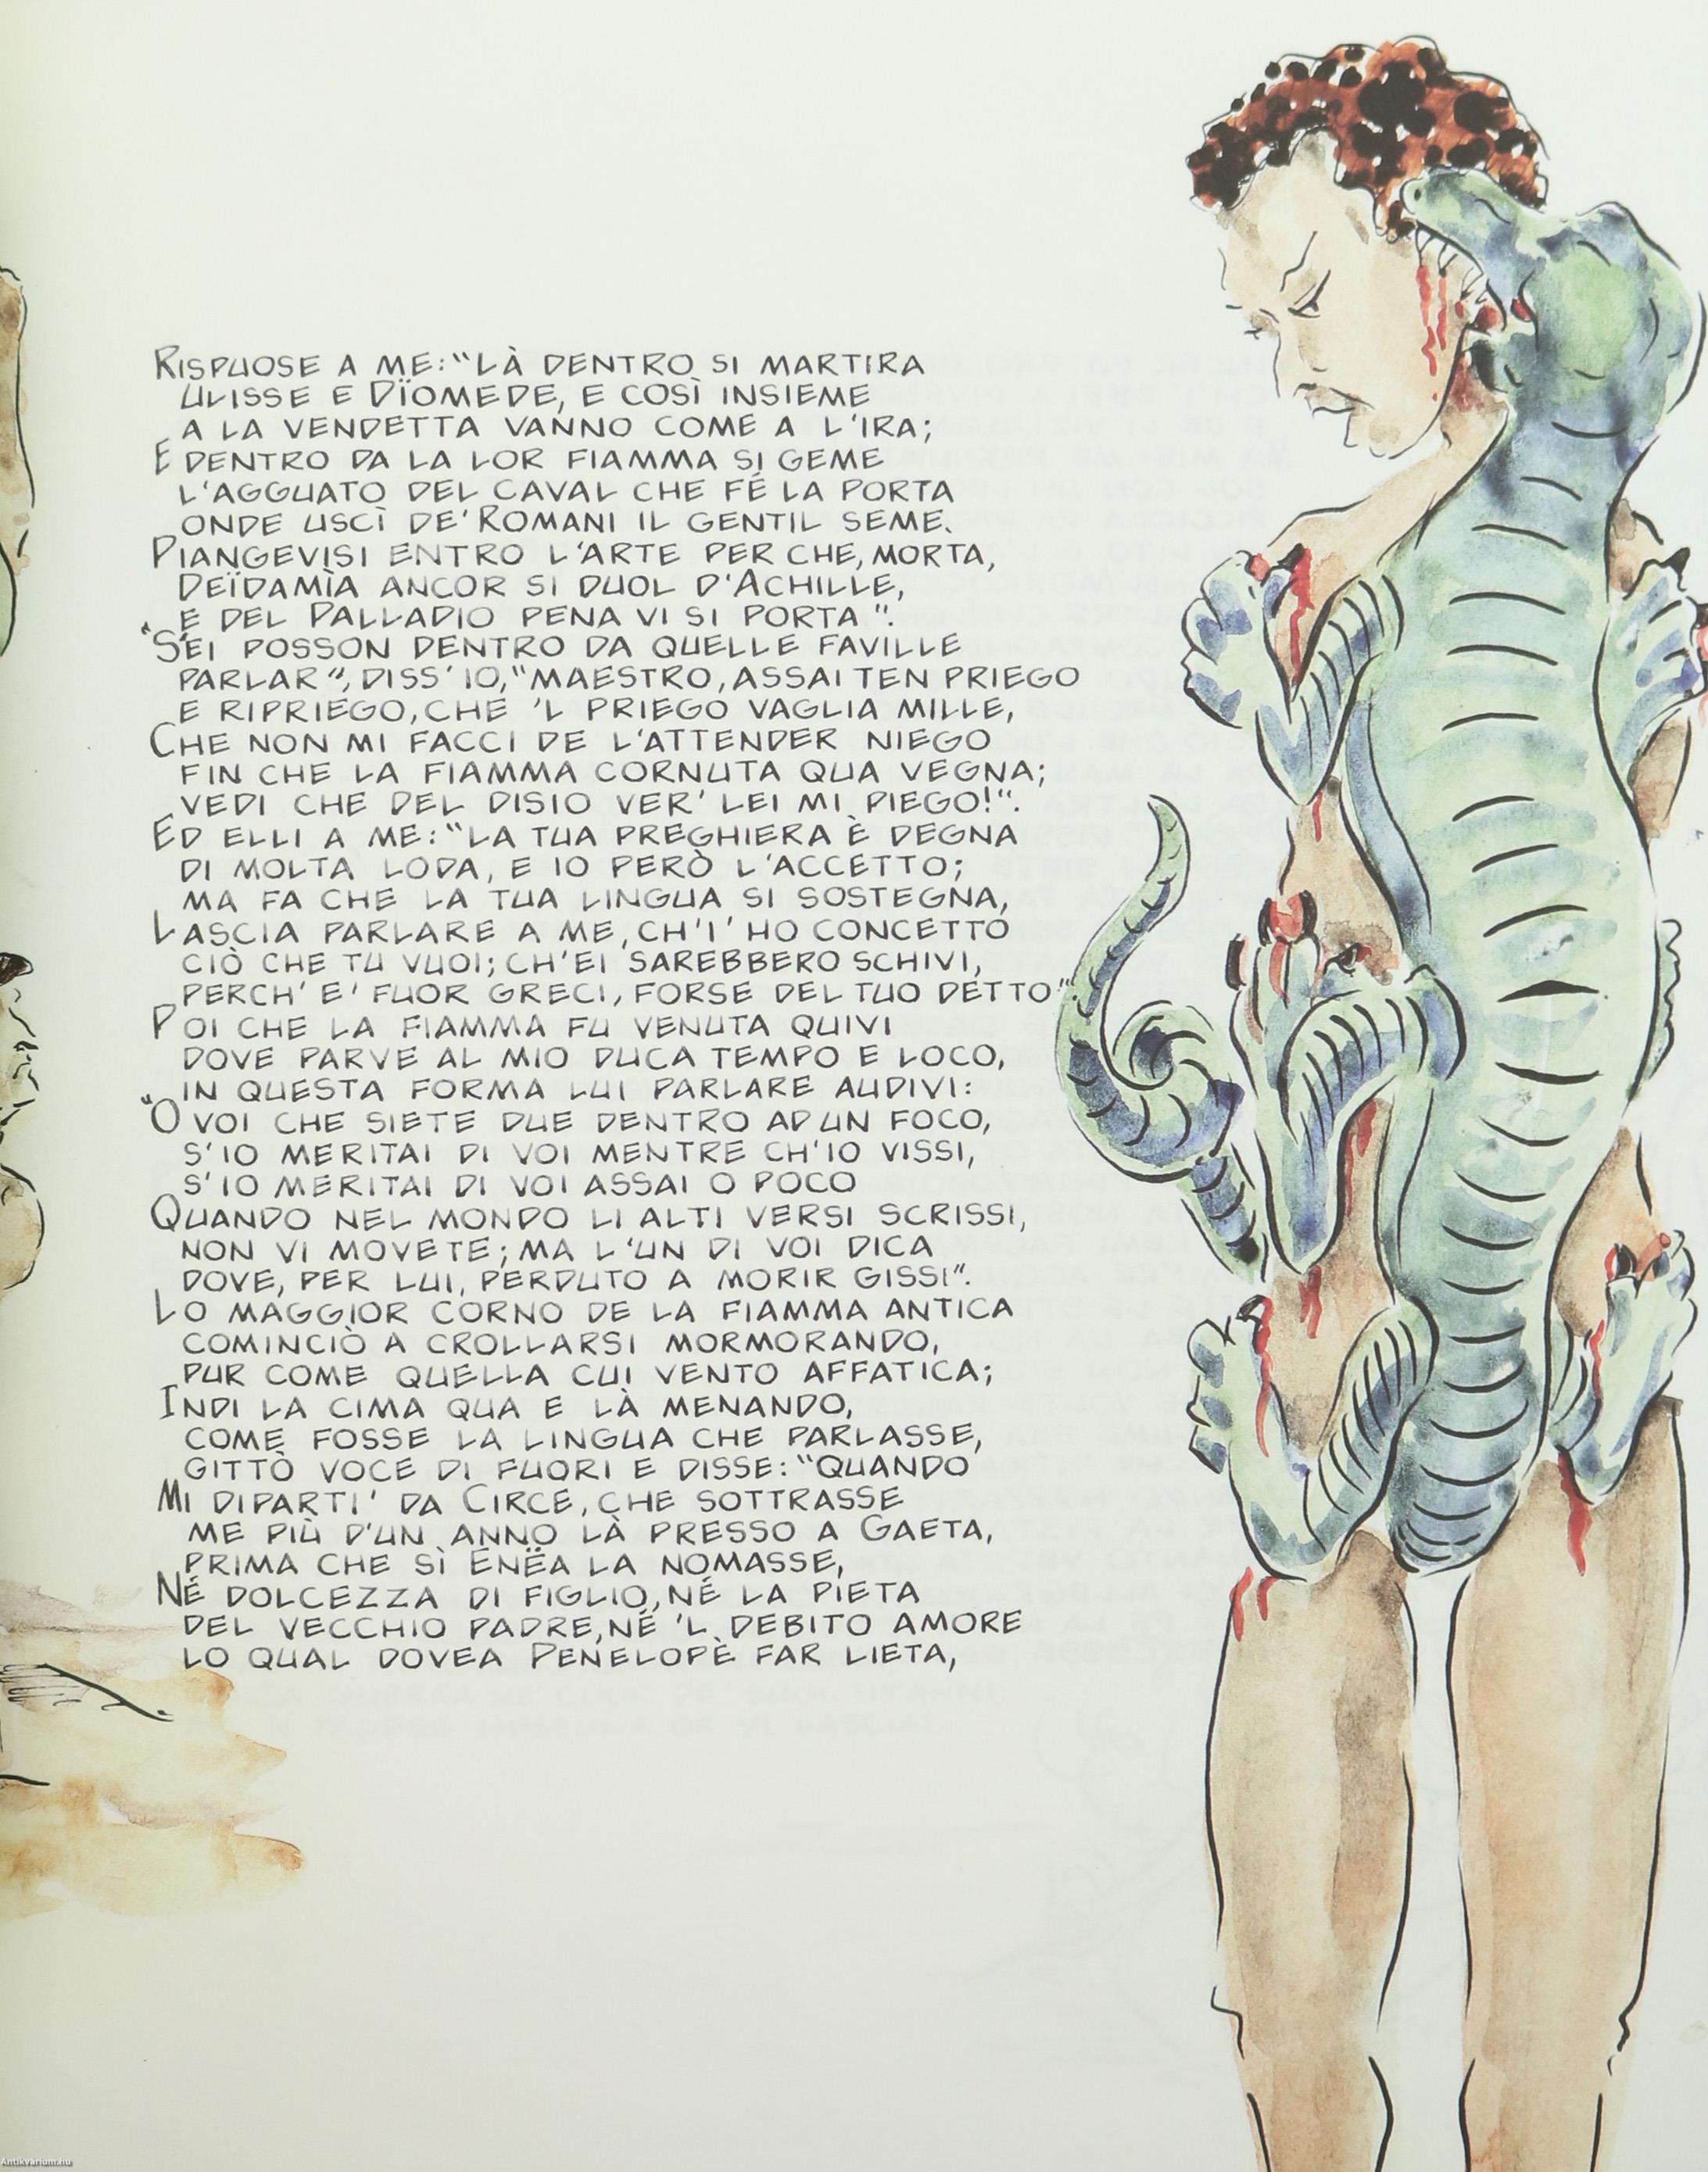 Rispuose a me: “Là dentro si martira
Ulisse e Dïomede, e così insieme
a la vendetta vanno come a l'ira;
E dentro da la lor fiamma si geme
l'agguato del caval che fé la porta
onde uscì de' Romani il gentil seme.
Piangevisi entro l'arte per che, morta,
Deïdamìa ancor si duol d'Achille,
e del Palladio pena vi si porta”.
“S'ei posson dentro da quelle faville
parlar”, diss'io, “maestro, assai ten priego
e ripriego, che 'l priego vaglia mille,
Che non mi facci de l'attender niego
fin che la fiamma cornuta qua vegna;
vedi che del disio ver' lei mi piego!”.
Ed elli a me: “La tua preghiera è degna
di molta loda, e io però l'accetto;
ma fa che la tua lingua si sostegna,
Lascia parlare a me, ch'i' ho concetto
ciò che tu vuoi; ch'ei sarebbero schivi,
perch'e' fuor Greci, forse del tuo detto”
Poi che la fiamma fu venuta quivi
dove parve al mio duca tempo e loco,
in questa forma lui parlare audivi:
“O voi che siete due dentro ad un foco,
s'io meritai di voi mentre ch'io vissi,
s'io meritai di voi assai o poco
Quando nel mondo li alti versi scrissi,
non vi movete; ma l'un di voi dica
dove, per lui, perduto a morir gissi”.
Lo maggior corno de la fiamma antica
cominciò a crollarsi mormorando,
pur come quella cui vento affatica;
Indi la cima qua e là menando,
come fosse la lingua che parlasse,
gittò voce di fuori e disse: “Quando
Mi diparti' da Circe, che sottrasse
me più d'un anno là presso a Gaeta,
prima che sì Enëa la nomasse,
Né dolcezza di figlio, né la pieta
del vecchio padre, né 'l debito amore
lo qual dovea Penelopè far lieta,
Antikvarium.hu